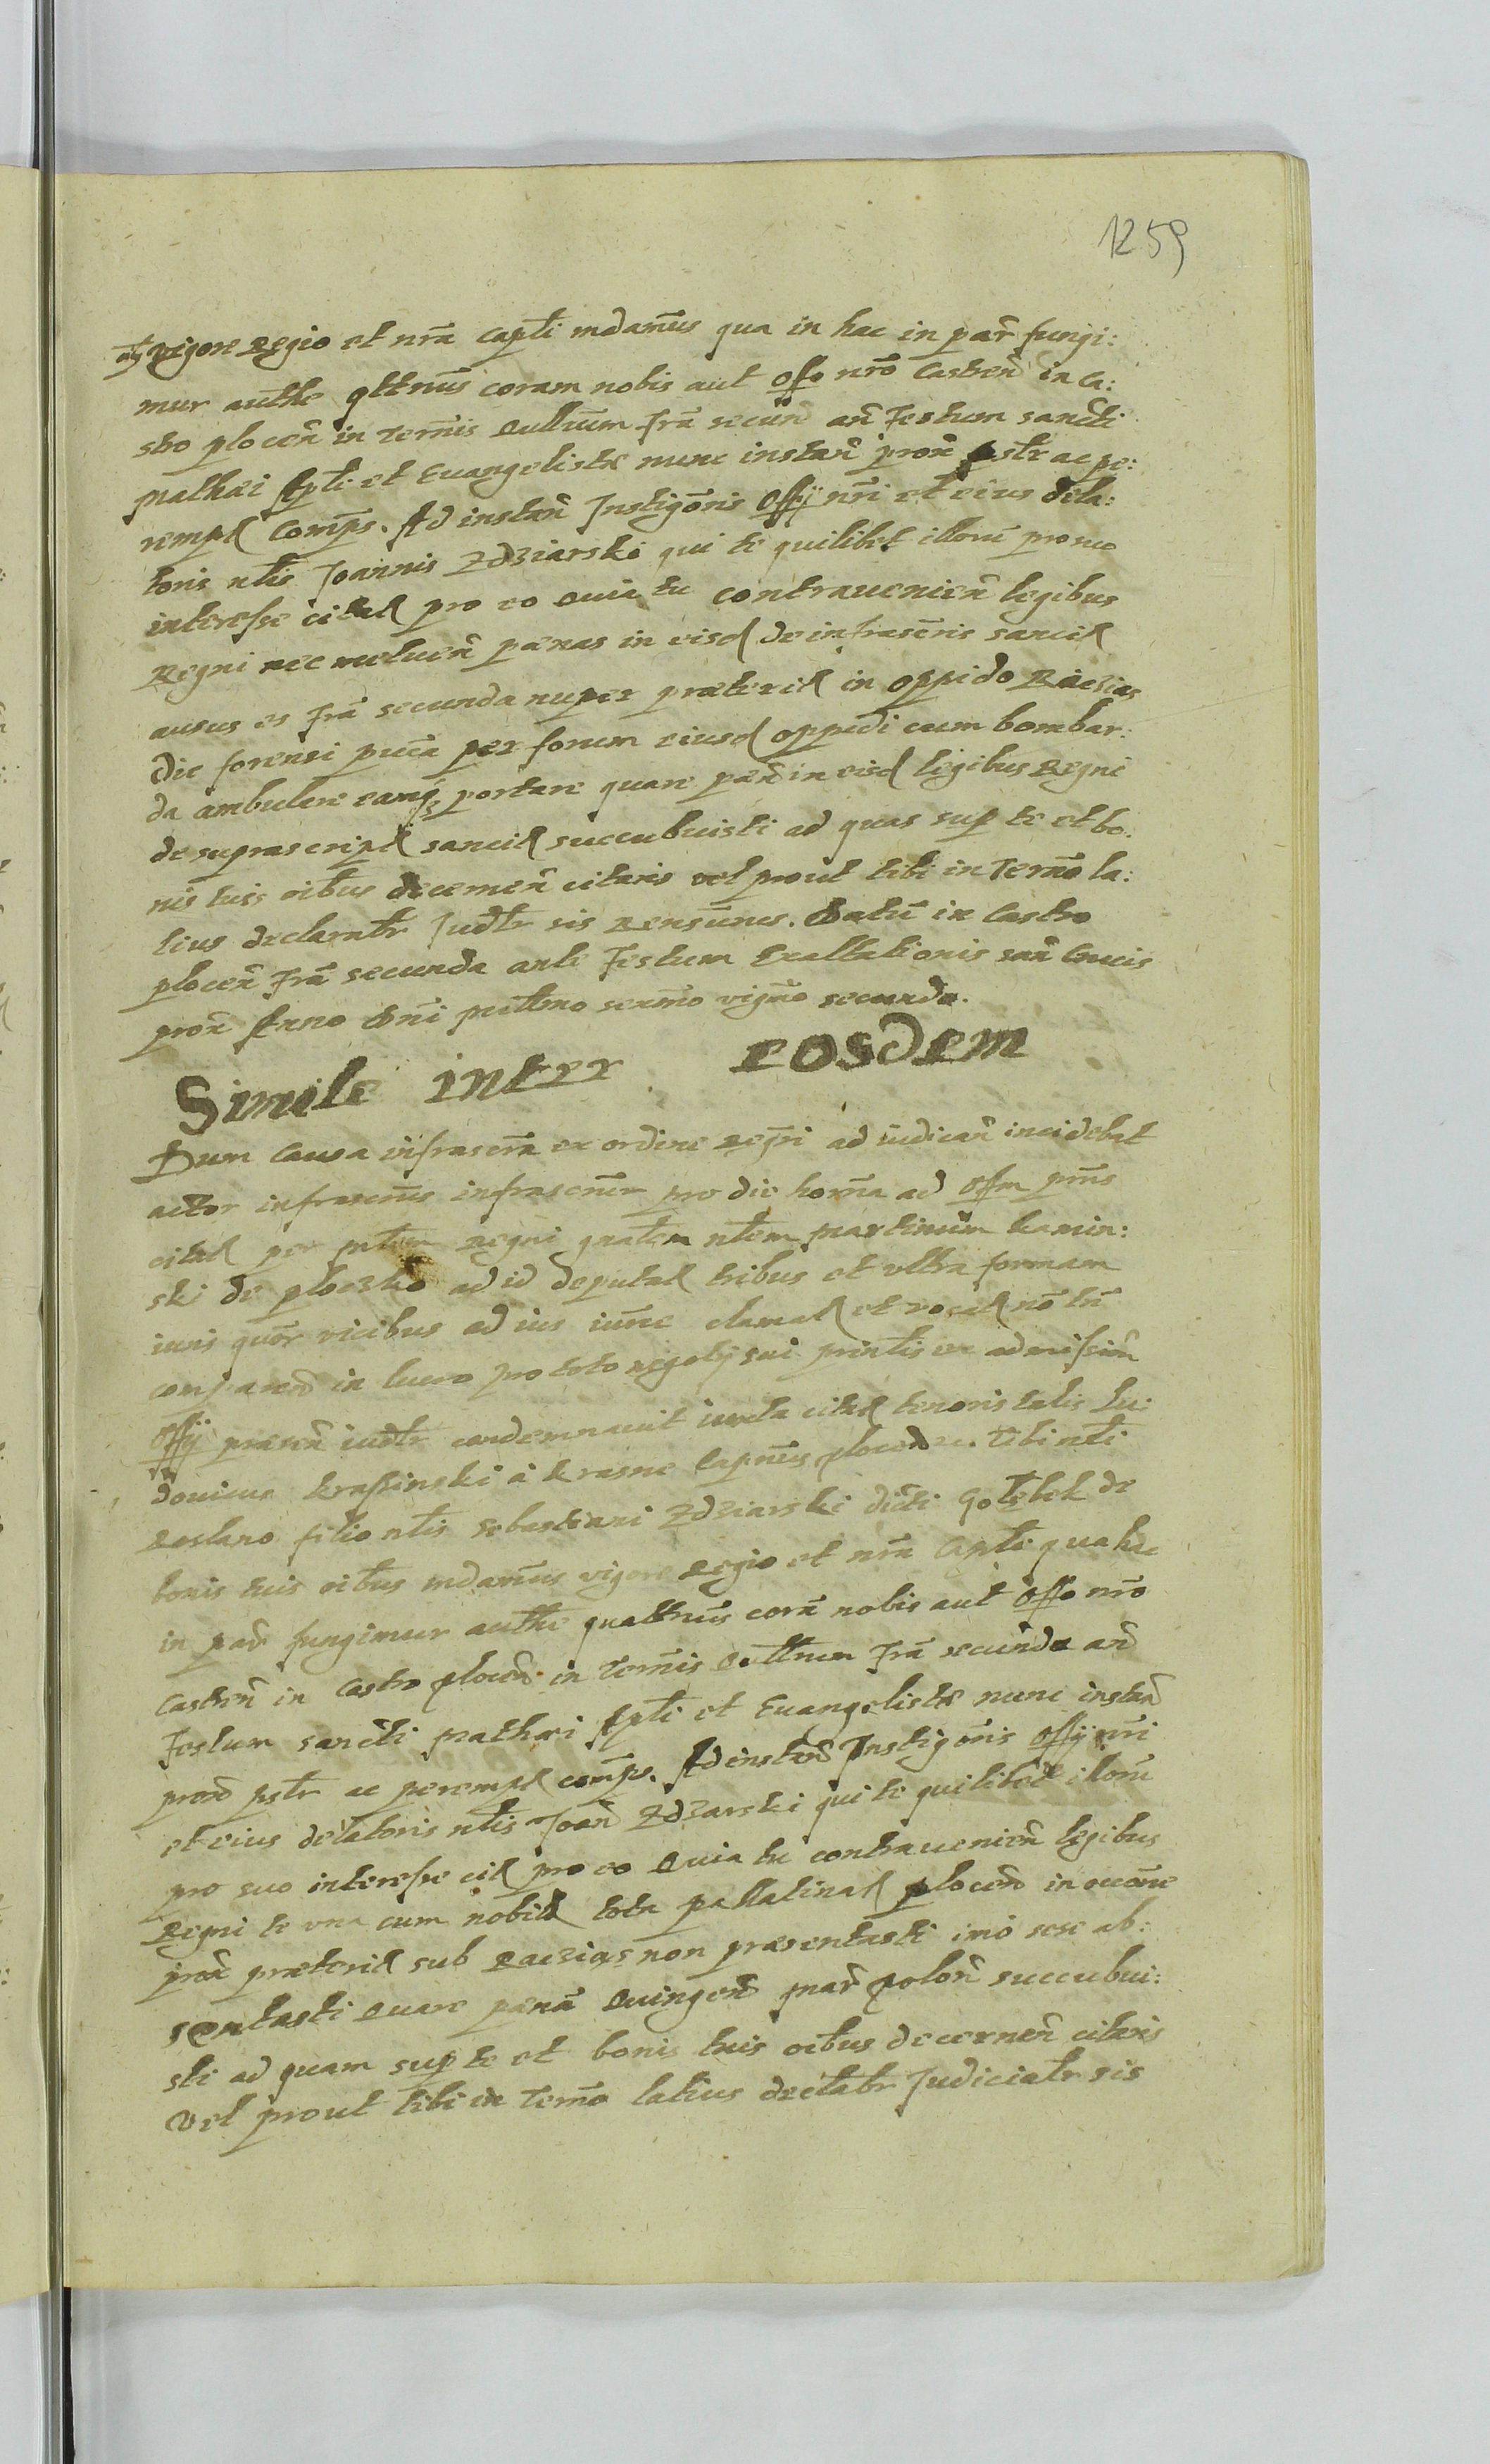 1259
atq vigore Regio et nrā Capti mdamus qua in hac in par fungi:
mur authe qttnus coram nobis aut Offo nrō Castren in Ca:
stro plocen in Termis Qullnum frā secun an Festum sancti
Mathæi Apli et Euangelistæ nunc instan prox pstr ac pe:
rempt Comps. Ad instan Instigoris Offij nri et eius dela:
toris nlis Joannis Zdziarski qui te quilibet illorū pro suo
interesse citat pro eo Quia tu contrauenien legibus
Regni nec metuen pænas in eisd de infrascris sancit
ausus es frā secunda nuper præterit in oppido Raciąs
die forensi puca per forum eiusd oppidi cum bombar:
da ambulare eamq portare quare pæn in eisd legibus Regni
de suprascript sancit succubuisti ad quas sup te et bo:
nis tuis oibus decernen citaris vel prout tibi in Termo la:
tius declarabr Judtr sis Rensurus. Datū in Castro
plocen frā secunda ante Festum Exaltationis san Crucis
prox Anno Dni millmo sexmo vigmo secundo.
Simile inter eosdem
Dum Causa infrascrā ex ordine Regri ad iudican incidebat
actor infrascrus infrascrum pro die horna ad Offm prns
citat per mtem Regni gnalem nlem Martinum Kamin:
ski de ploczko ad id deputat tribus et vltra formam
iuris quor vicibus ad ius iurne clamat et vocat nō tn
comparen in lucro pro toto negotij sui printlis ex admission
Offij præsen iudtr condemnauit iuxta citat tenoris talis Lu:
douicus Krassinski à Krasne Capneus plocen ec. Tibi nli
Roslano filio nlis Sebastiani Zdziarski dicti Gołębek de
bonis tuis oibus mdamus vigore Regio et nrā Capti qua hac
in par fungimur authe quattnus corā nobis aut Offo nrō
Castren in Castro plocen in Termis Qullnum frā secunda an
Festum sancti Mathæi Apli et Euangelistæ nunc instan
prox pstr ac perempt comps. Ad instan Instigoris Offij nri
et eius delatoris nlis Joan Zdzarski qui te quilibet illorū
pro suo interesse cit pro eo Quia tu contrauenien legibus
Regni te vna cum nobilt tota pallatinat plocen in occone
prox præterit sub Raciąs non præsentasti imo sese ab:
sentasti Quare pænā Quingen mar polon succubui:
sti ad quam sup te et bonis tuis oibus decernen citaris
vel prout tibi in Termo latius declabr Judicialr sis